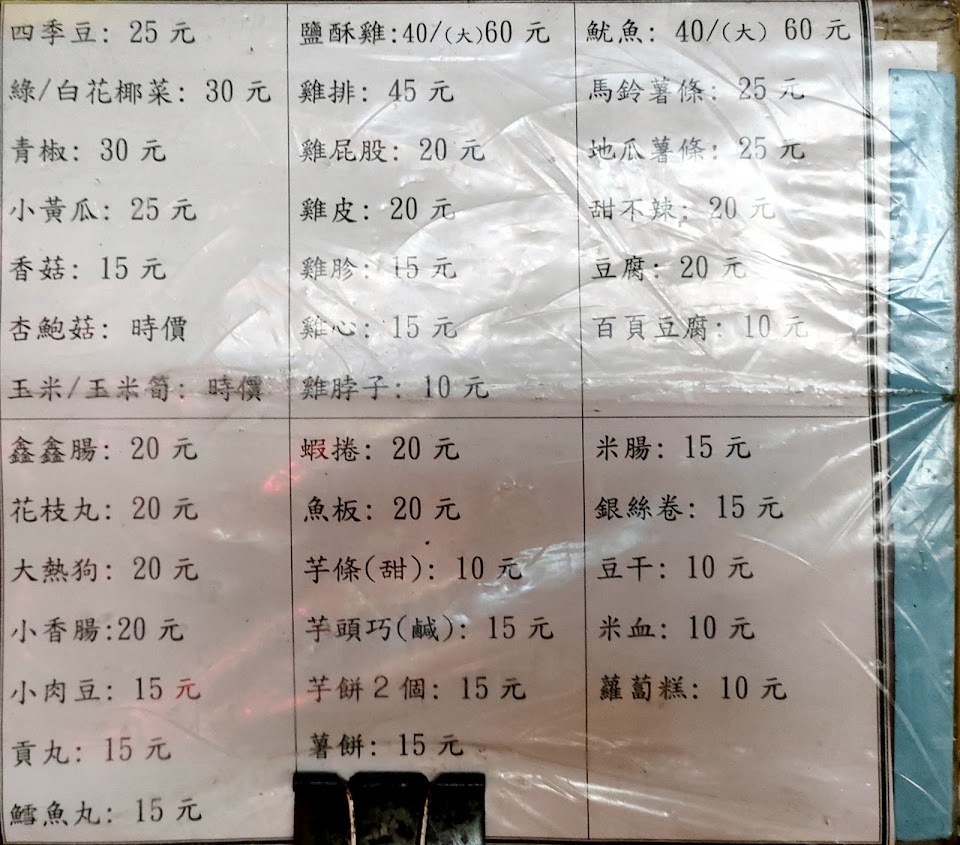 四季豆: 25 元
綠/白花椰菜: 30 元
青椒: 30 元
小黃瓜: 25 元
香菇: 15 元
杏鮑菇: 時價
玉米/玉米筍: 時價
鹽酥雞:40/(大)60 元
雞排: 45 元
雞屁股: 20 元
雞皮: 20 元
雞胗: 15 元
雞心: 15 元
雞脖子: 10 元
魷魚: 40/(大) 60 元
馬鈴薯條: 25 元
地瓜薯條: 25 元
甜不辣: 20 元
豆腐: 20 元
百頁豆腐: 10 元
鑫鑫腸: 20 元
花枝丸: 20 元
大熱狗: 20 元
小香腸:20 元
小肉豆: 15 元
貢丸: 15 元
鱈魚丸: 15 元
蝦捲: 20 元
魚板: 20 元
芋條(甜): 10 元
芋頭巧(鹹): 15 元
芋餅2個: 15 元
薯餅: 15 元
米腸: 15 元
銀絲卷: 15 元
豆干: 10 元
米血: 10 元
蘿蔔糕: 10 元